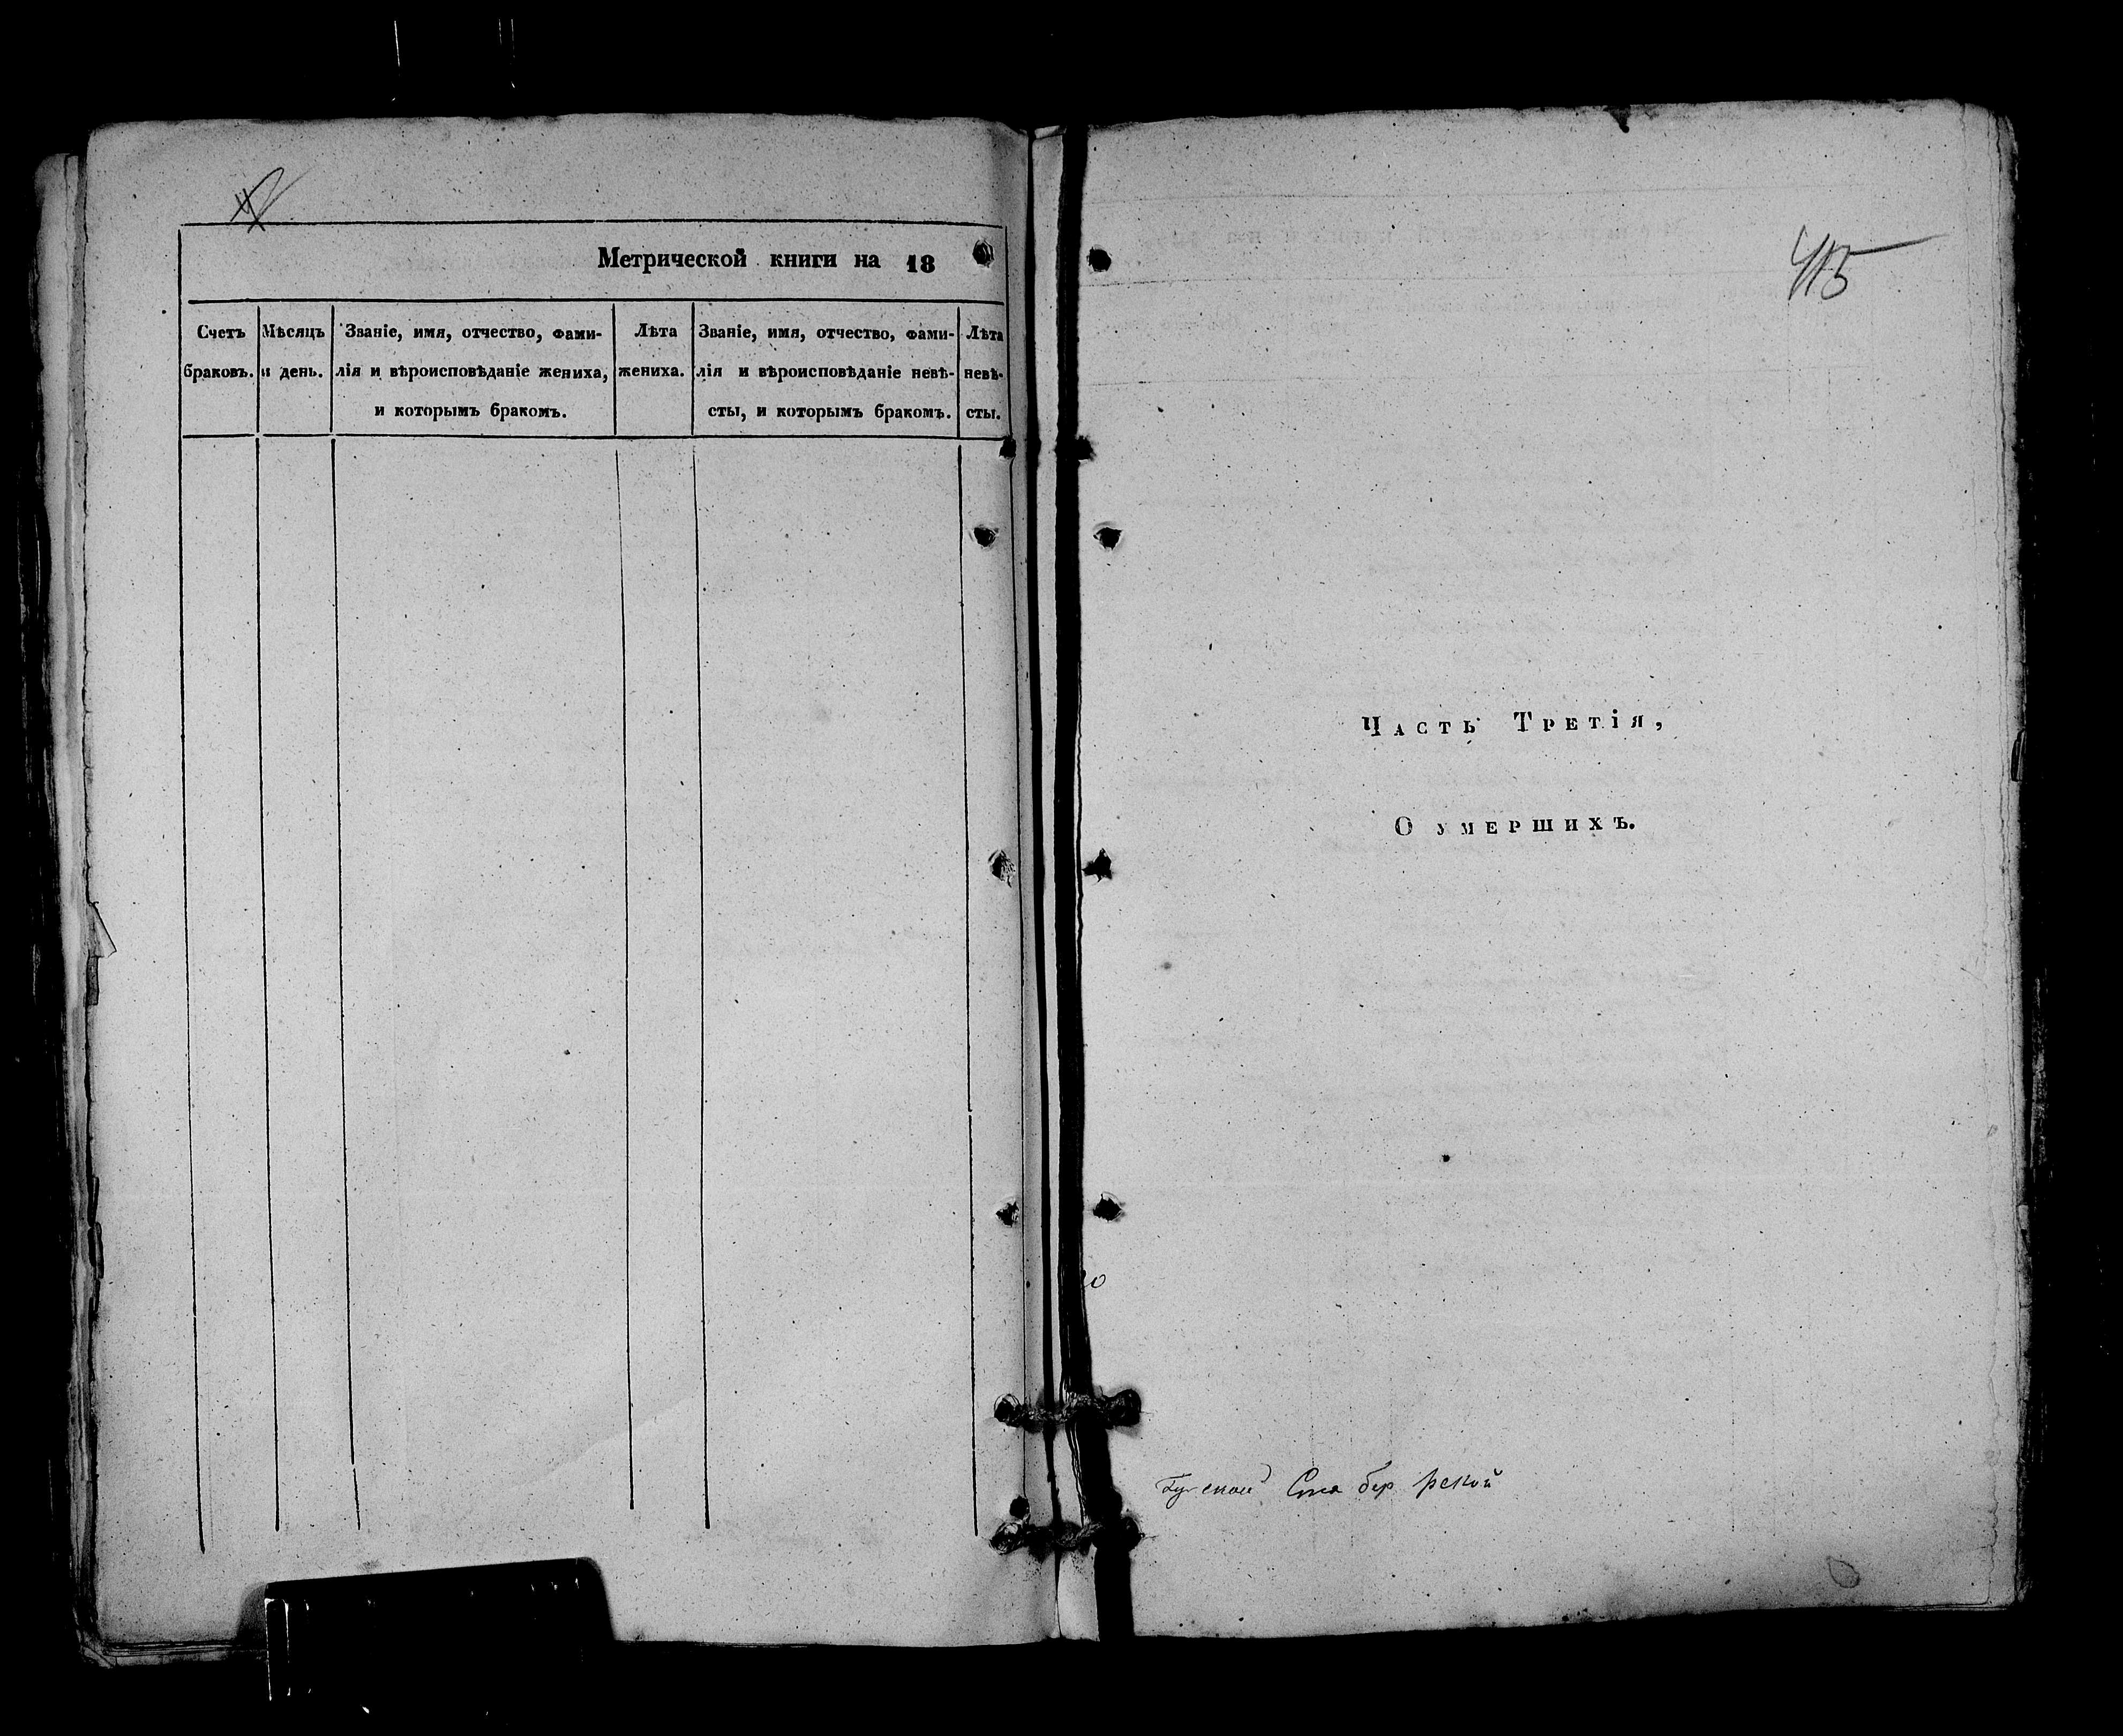 Метрической книги на 18
Счетъ
браковъ.
Мѣсяцъ
и день.
Званіе, имя, отчество, фами-
лія и вѣроисповѣданіе жениха,
и которымъ бракомъ.
Лѣта
жениха.
Званіе, имя, отчество, фами-
лія и вѣроисповѣданіе невѣ-
сты, и которымъ бракомъ.
Лѣта
невѣ-
сты.
415
Часть Третія,
О умершихъ.